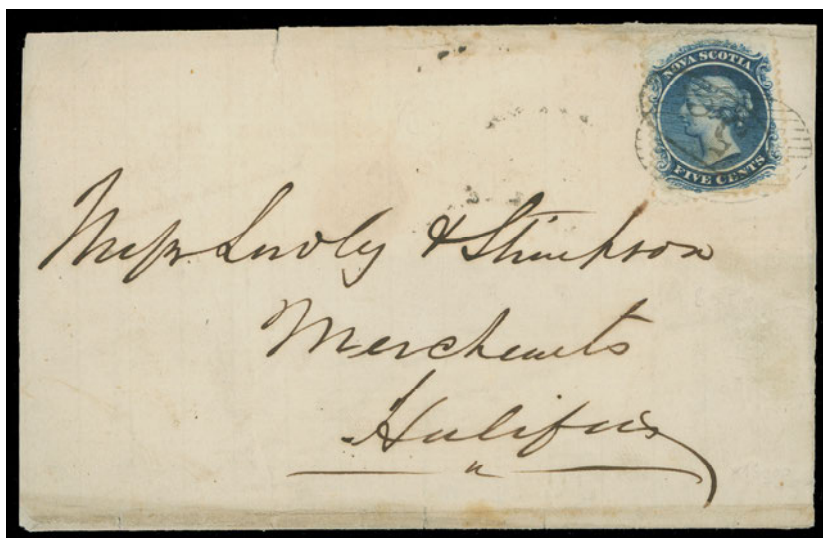 NOVA SCOTIA
FIVE CENTS
Messr & Stimpson
Merchants
Halifax